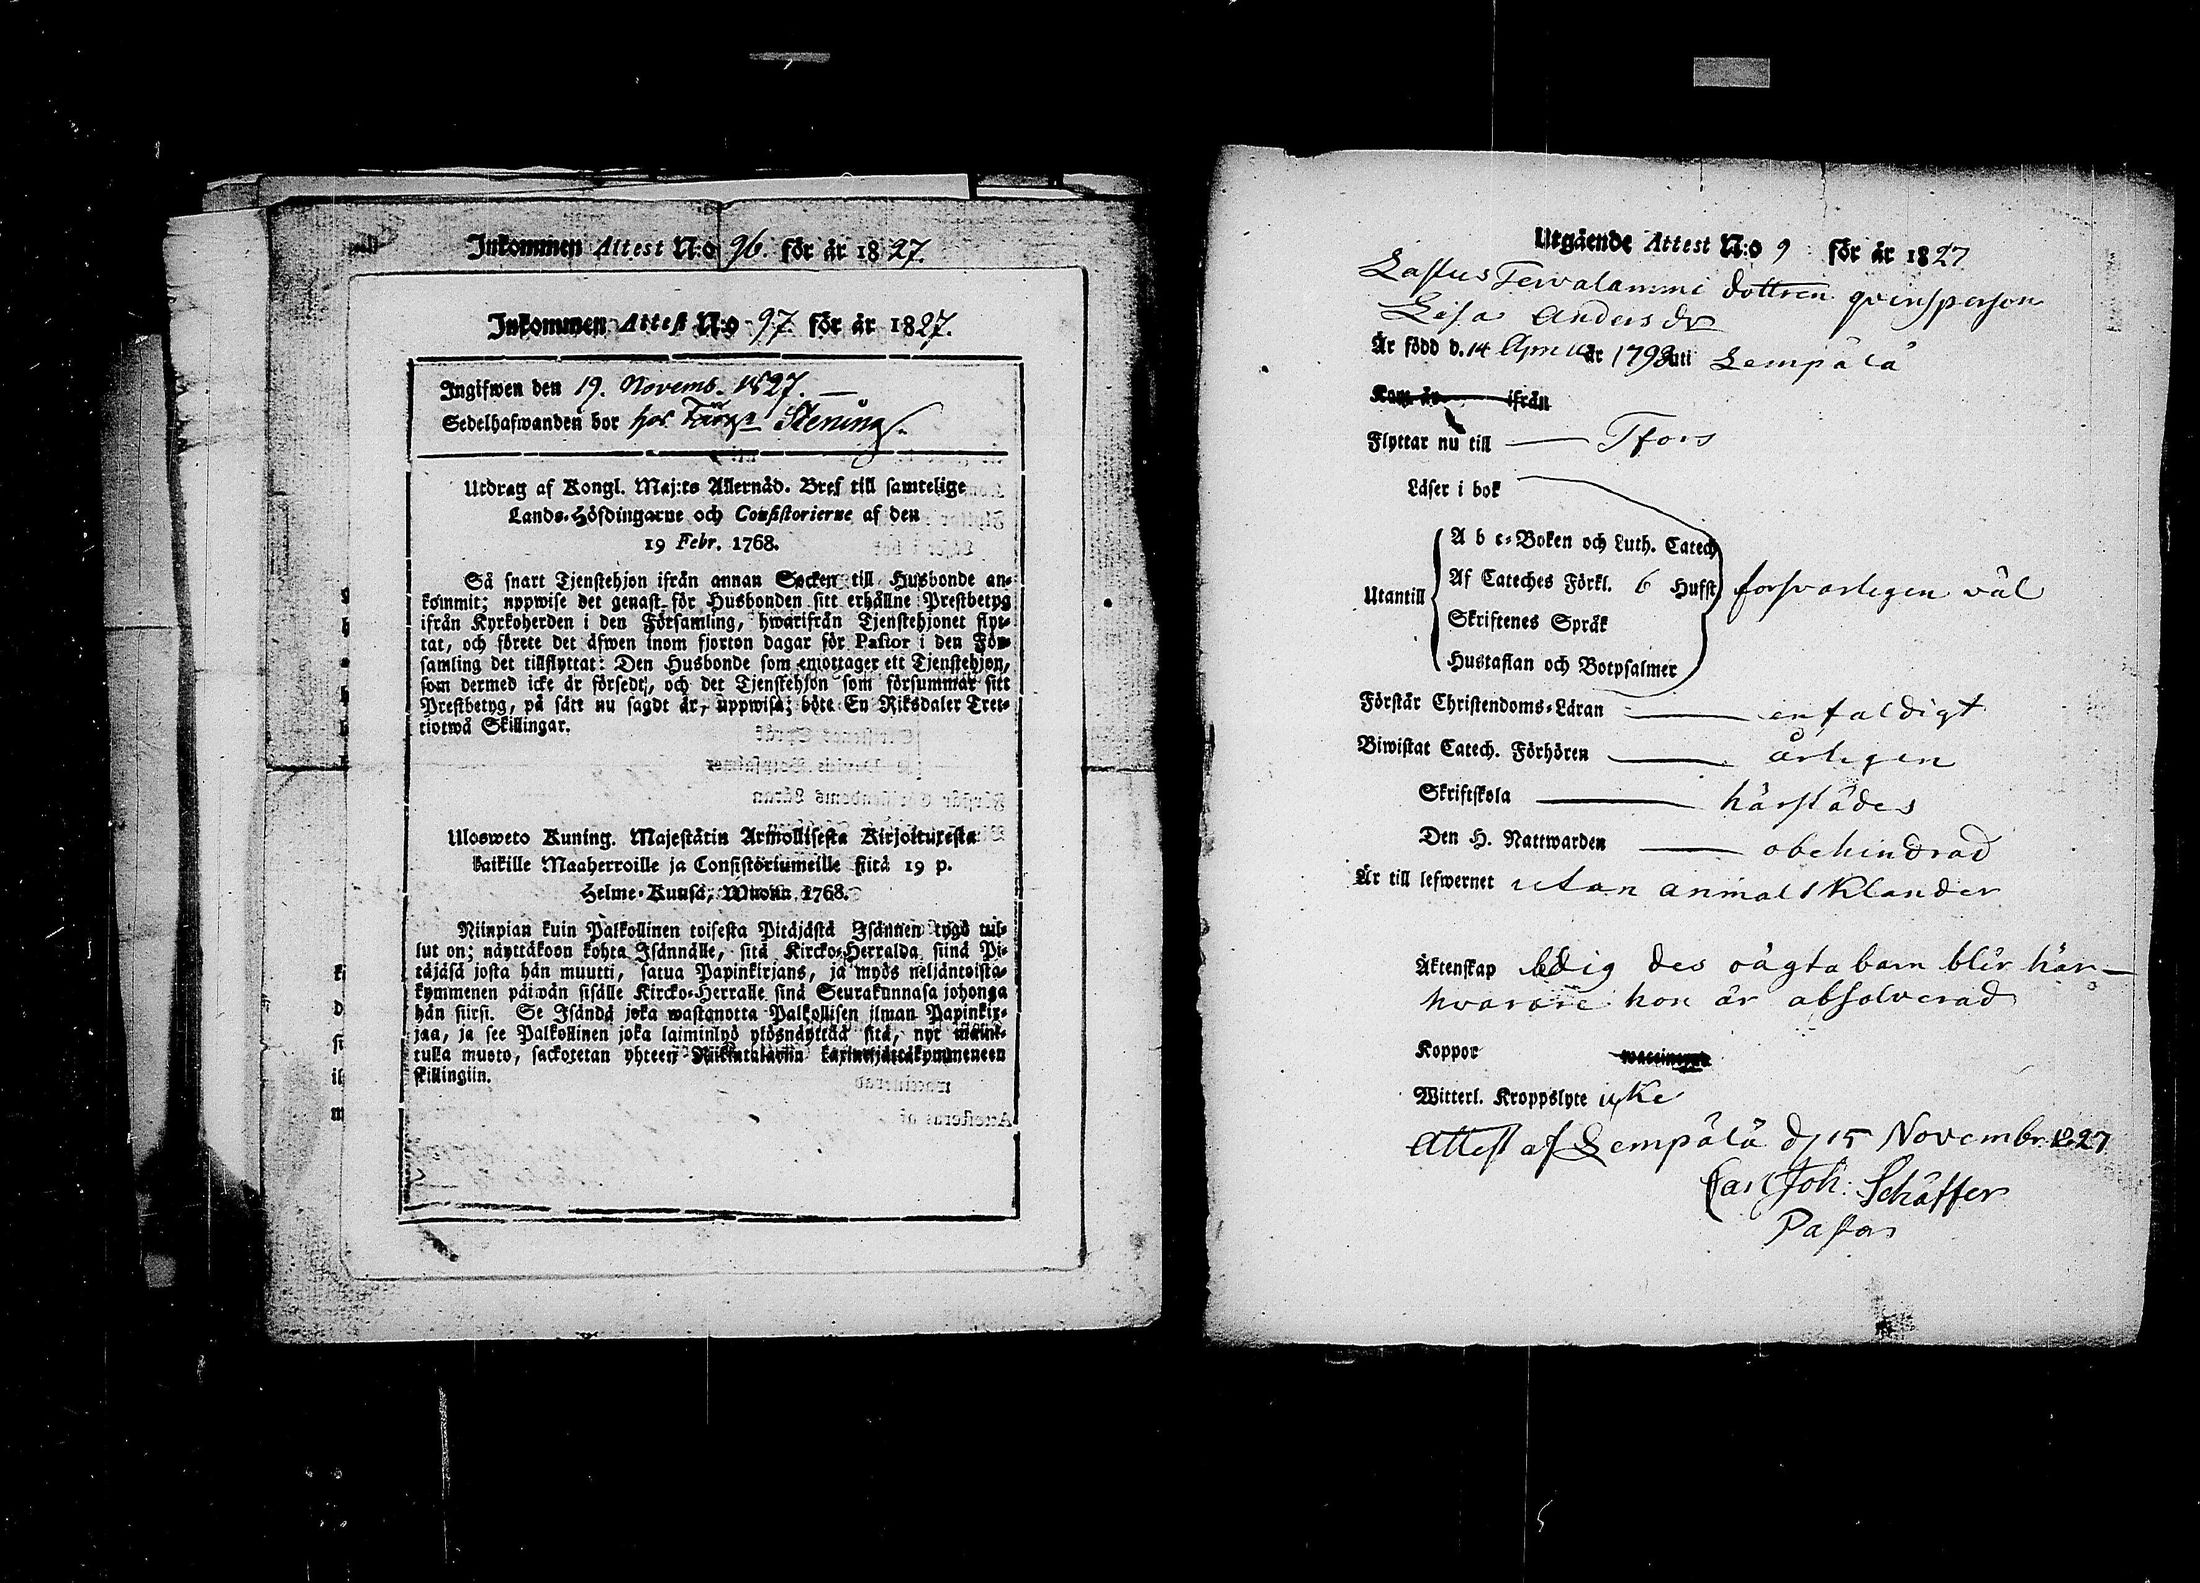 Inkommen Attest N:o 96. för år 1827.
Inkommen Attest N:o 97. för år 1827.
Ingifwen den 19. Novemb. 1827.
Sedelhafwanden bor hos Stening.
Utdrag af Kongl. Maj:ts Allernåd. Bref till samtelige
Lands-Höfdingarne och Consistorierne af den
19 Febr. 1768.
Så snart Tjenstehjon ifrån annan Socken till Husbonde an-
kommit; uppwise det genast för Husbonden sitt erhållne Prestbetyg
ifrån Kyrkoherden i den Församling, hwarifrån Tjenstehjonet flyt-
tat, och förete det äfwen inom fjorton dagar för Pastor i den För-
samling det tillflyttat: Den Husbonde som emottager ett Tjenstehjon,
som dermed icke är försedt, och det Tjenstehjon som försummar sitt
Prestbetyg, på sätt nu sagdt är, uppwisa; böte En Riksdaler Tret-
tiotwå Skillingar.
Ulosweto Kuning. Majestätin Armollisesta Kirjoituresta
kaikille Maaherroille ja Consistoriumeille siitä 19 p.
Helme-Kuusa, Wuonna 1768.
Niinpian kuin Palkollinen toisesta Pitäjästä Isännen tygö tul-
lut on; näyttäkoon kohta Isännälle, sitä Kircko-Herralda siinä Pi-
täjäsä josta hän muutti, satua Papinkirjans, ja myös neljäntoista-
kymmenen päiwän sisälle Kircko-Herralle sinä Seurakunnasa johonga
hän siirsi. Se Isändä joka wastanotta Palkollisen ilman Papinkir-
jaa, ja see Palkollinen joka laiminlyö ylösnäyttää sitä, nyt mainit-
tulla muoto, sackotetan yhteen Riikintalariin kaxineljättäkymmeneen
skillingiin.
Utgående Attest N:o 9 för år 1827
Lastus Terwalammi dottren qvinsperson
Lisa Anders dr
Är född d. 14 April år 1793 uti Lempälä
Kom år ifrån
Flyttar nu till Tfors
Läser i bok
A b c-Boken och Luth. Catech
Af Cateches Förkl. 6 Hufst
Utantill försvarligen väl
Skriftenes Språk
Hustaflan och Botpsalmer
Förstår Christendoms-Läran enfaldigt
Biwistat Catech. Förhören årligen
Skriftskola härstädes
Den H. Nattwarden obehindrad
Är till lefwernet utan anmält Klander
Äktenskap ledig des oägta barn blir här
hvarföre hon är absolverad
Koppor waccinerad
Witterl. Kroppslyte icke
Attest af Lempälä d. 15 Novembr. 1827
Carl Joh: Schäffer
Pastor